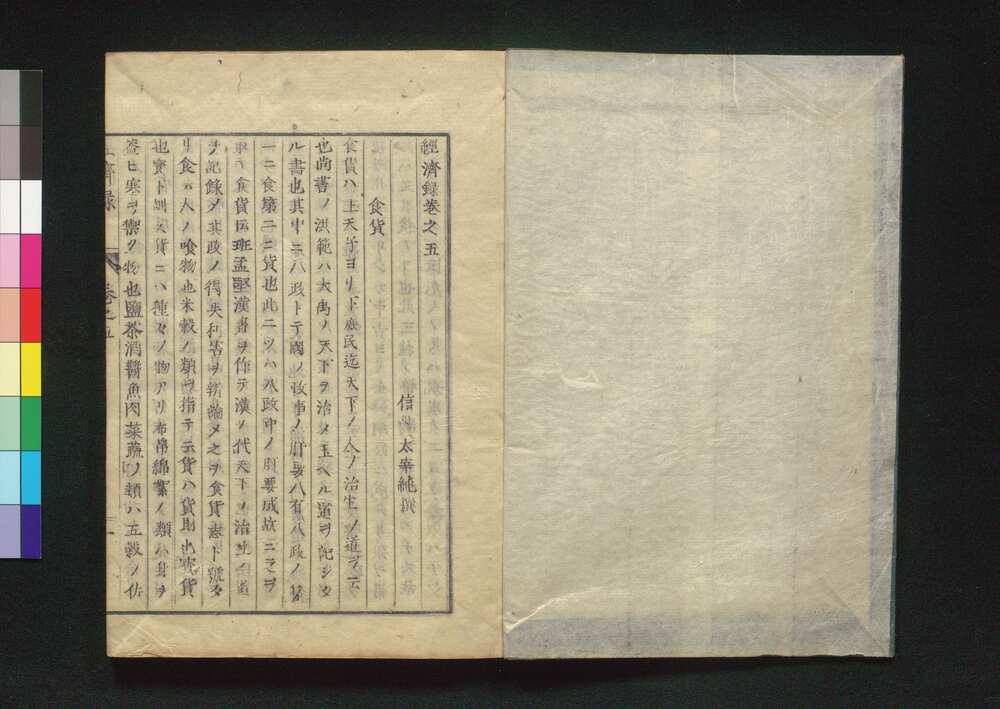 經濟録卷之五
信陽太宰純撰
食貨
食貨ハ上天子ヨリ下庶民迄天下ノ人ノ治生ノ道ヲ云
也尚書ノ洪範ハ大禹ノ天下ヲ治メ玉ヘル道ヲ記シタ
ル書也其中ニ八政トテ國ノ政事ノ肝要八有八政ノ第
一ニ食第二ニ貨也此二ツハ八政中ノ肝要成故ニ二ヲ
取テ食貨因班孟堅漢書ヲ作テ漢ノ代天下ノ治生ノ道
ヲ記録メ其政ノ得失利害ヲ メ之ヲ食貨志ト號タ
リ食ハ人ノ喰物也米穀ノ類ヲ指テ云貨ハ貨財也寳貨
也寳ト訓ス貨ニハ種々ノ物アリ布帛綿絮ノ類ハ身ヲ
蓋ヒ寒ヲ禦ク物也鹽茶酒醬魚肉菜蔬ノ類ハ五穀ノ佐
濟録 卷之五